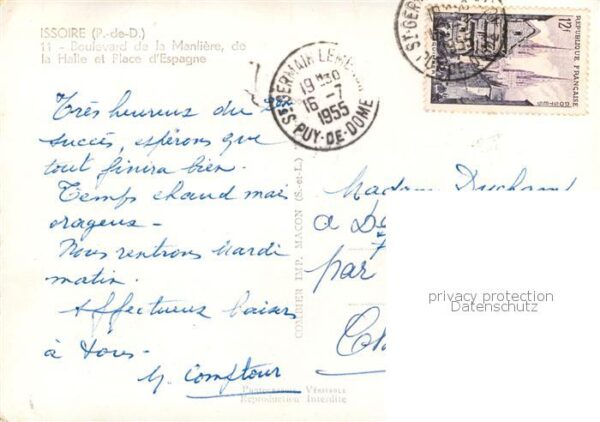 ISSOIRE (P.-de-D.)
11 - Boulevard de la Manlière, de
la Halle et Place d'Espagne
Très heureux du
succès, espérons que
tout finira bien.
Temps chaud mais
orageux -
Nous rentrons Mardi
matin.
Affectueux baisers
à tous -
Comptour
COMBIER IMP. MACON (S.-et-L.)
Photographie Véritable
Reproduction Interdite
ST GERMAIN LEMBRON
19H30
16-7
1955
PUY-DE-DOME
ST GERM
12F
REPUBLIQUE FRANÇAISE
POSTES
Madame
a
par
privacy protection
Datenschutz